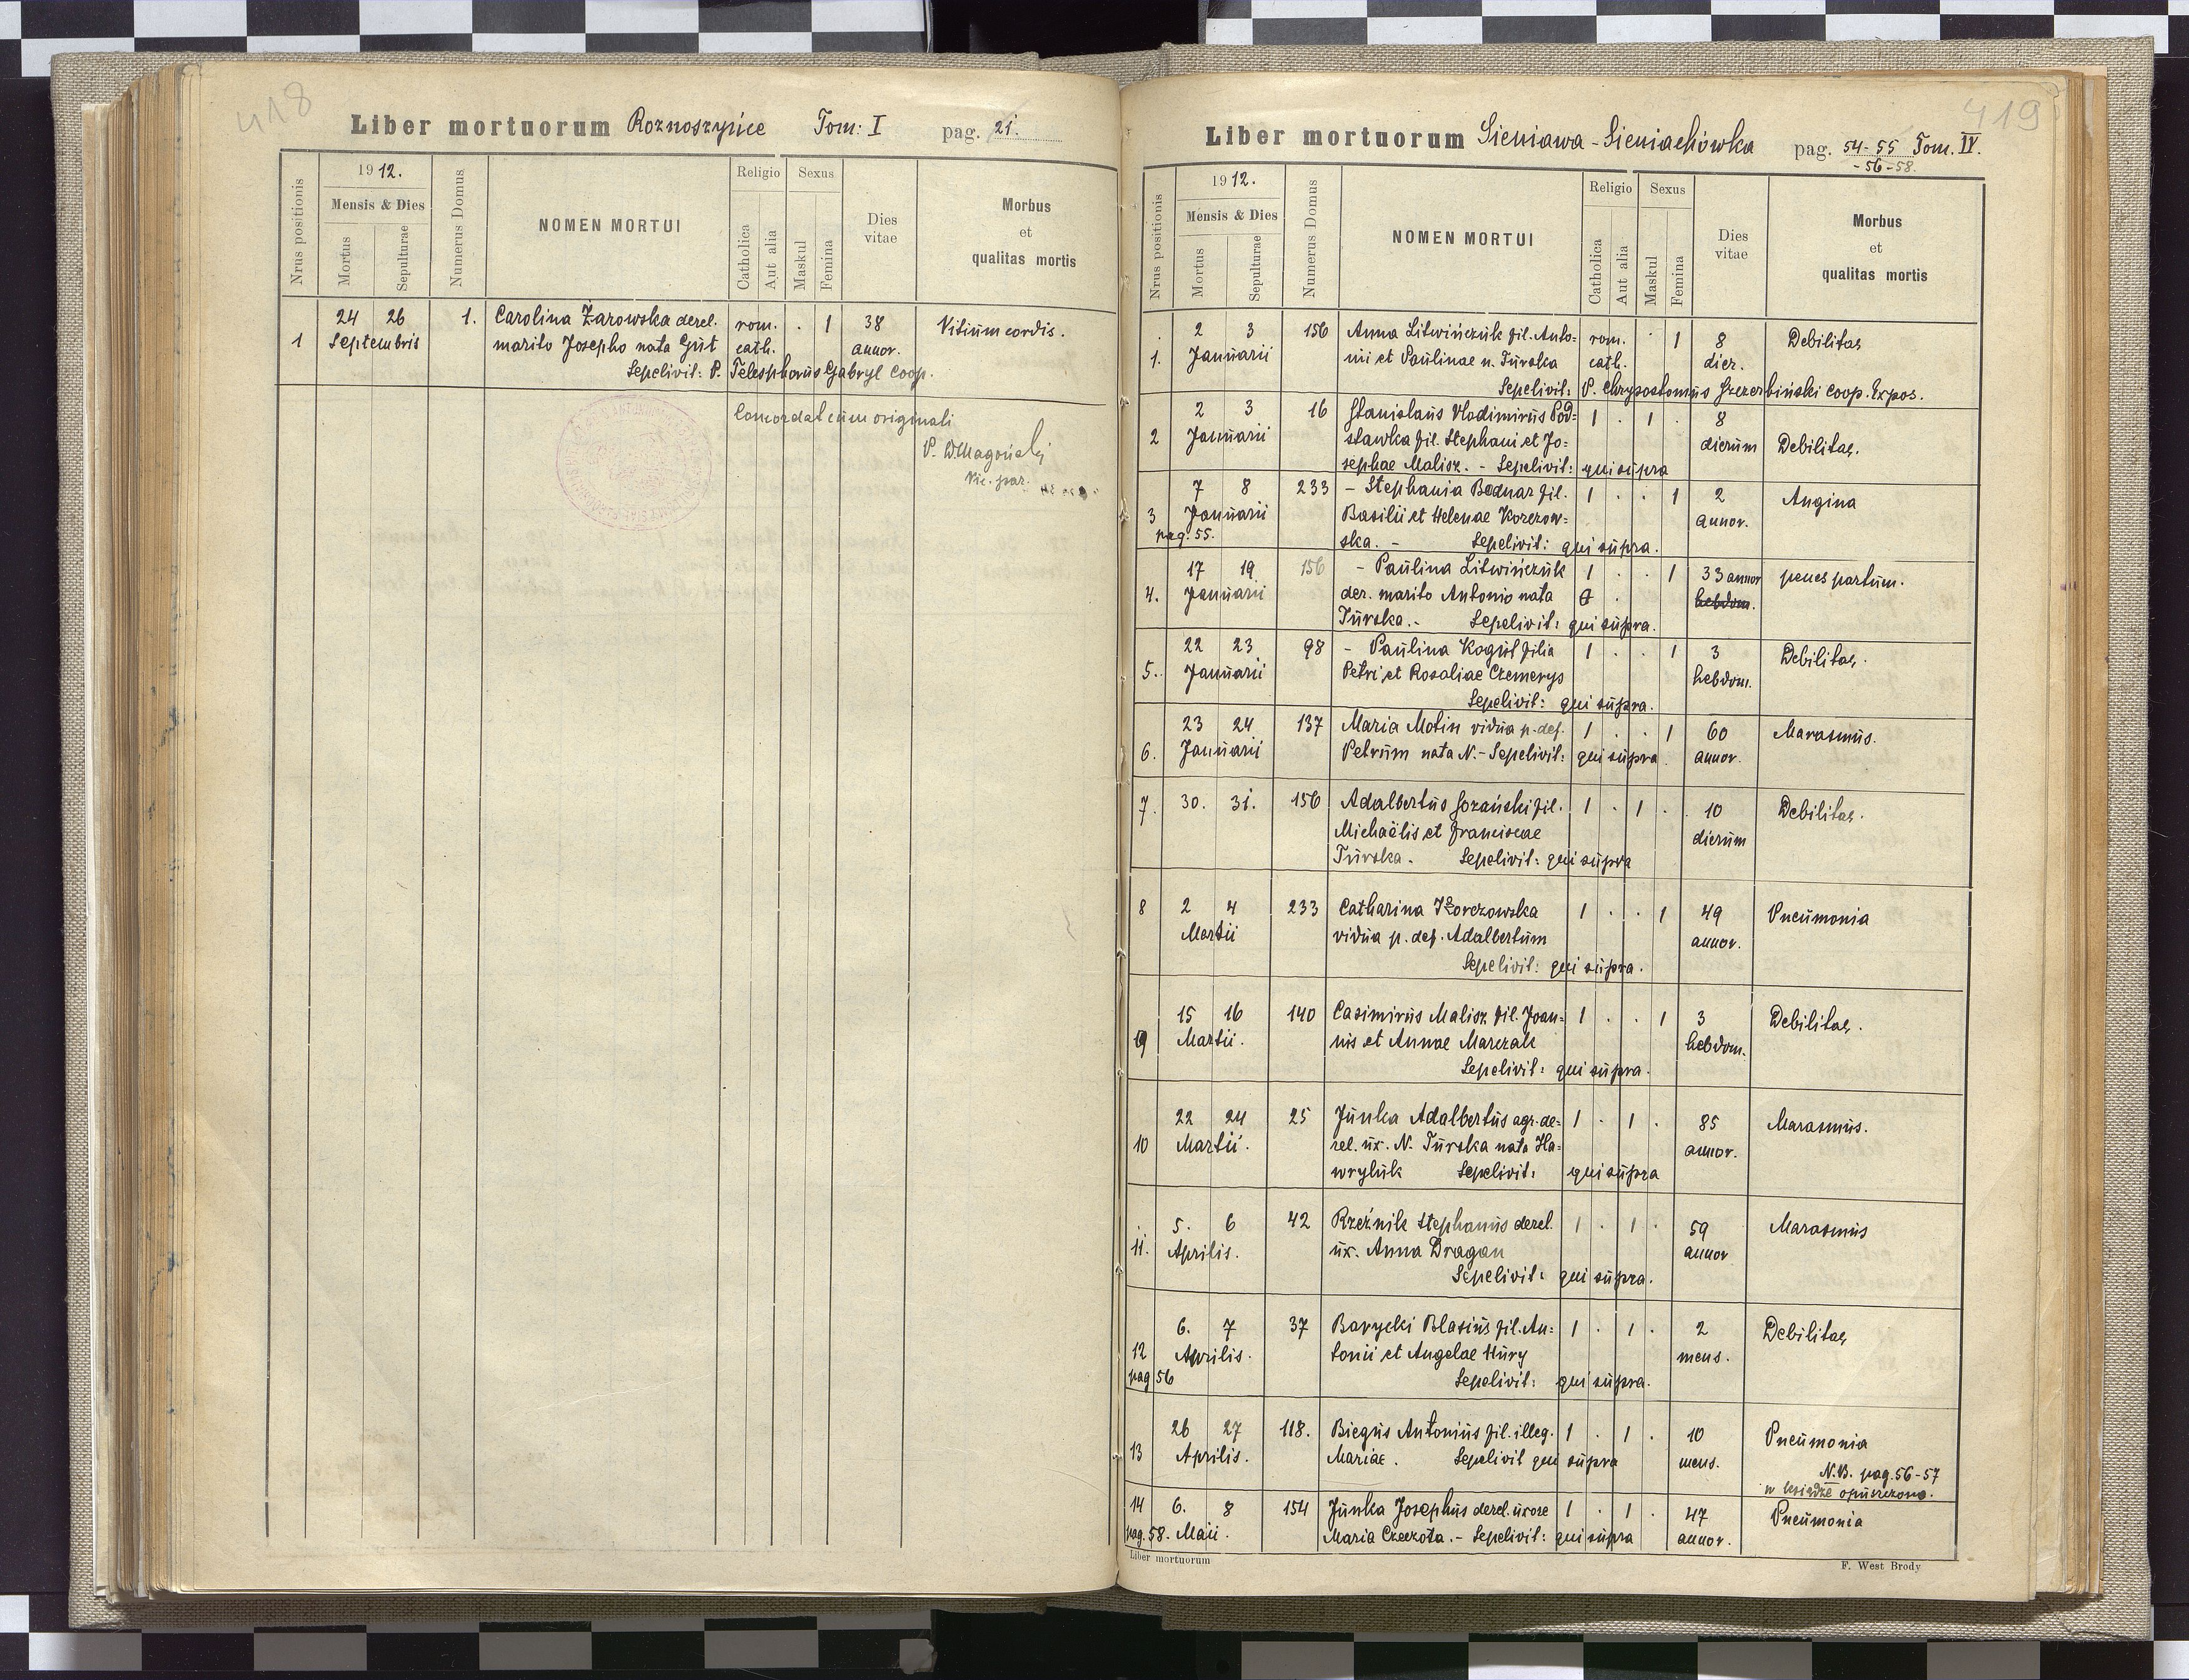 418
Liber mortuorum Roznoszyńce Tom: I pag. 21.
Nrus positionis
1912.
Mensis & Dies
Mortus
Sepulturae
Numerus Domus
NOMEN MORTUI
Religio
Catholica
Aut alia
Sexus
Maskul
Femina
Dies vitae
Morbus et qualitas mortis
24 26 1. Carolina Żarowska derel. rom. . 1 38 Vitium cordis.
1 Septembris marito Josepho nata Gut cath. annor.
Sepelivit: P. Telesphorus Gabryl coop.
Concordat cum originali
Vic. par.
419
Liber mortuorum Sieniawa-Sieniachówka pag. 54-55 Tom. IV.
-56-58.
Nrus positionis
1912.
Mensis & Dies
Mortus
Sepulturae
Numerus Domus
NOMEN MORTUI
Religio
Catholica
Aut alia
Sexus
Maskul
Femina
Dies vitae
Morbus et qualitas mortis
2 3 156 Anna Litwińczuk fil. Anto= rom. . 1 8 Debilitas
1. Januarii nii et Paulinae n. Turska cath. dier.
Sepelivit: P. Chrysostomus Szczerbiński coop. Expos.
2 3 16 Stanislaus Vladimirus Pod= 1 . 1 . 8
2 Januarii stawka fil. Stephani et Jo= dierum Debilitas.
sephae Malisz. - Sepelivit: qui supra
7 8 233 - Stephania Bodnar fil. 1 . . 1 2 Angina
3 Januarii Basilii et Helenae Korczow= annor.
pag. 55. ska. - Sepelivit: qui supra.
17 19 156 - Paulina Litwińczuk 1 . . 1 33 annor penes partum.
4. Januarii der. marito Antonio nata hebdom.
Turska.- Sepelivit: qui supra.
22 23 98 - Paulina Kogut filia 1 . . 1 3 Debilitas.
5. Januarii Petri et Rosaliae Czemerys hebdom.
Sepelivit: qui supra.
23 24 137 Maria Motin vidua p. def. 1 . . 1 60 Marasmus.
6. Januarii Petrum nata N.- Sepelivit: qui supra. annor.
7. 30. 31. 156 Adalbertus Gozański fil. 1 . 1 . 10 Debilitas.
Michaëlis et Franciscae dierum
Turska. Sepelivit: qui supra
8 2 4 233 Catharina Korczowska 1 . . 1 49 Pneumonia
Martii vidua p. def. Adalbertum annor.
Sepelivit: qui supra.
15 16 140 Casimirus Malisz fil. Joan= 1 . . 1 3 Debilitas.
9 Martii. nis et Annae Marczak hebdom.
Sepelivit: qui supra.
22 24 25 Junka Adalbertus agr. de= 1 . 1 . 85 Marasmus.
10 Martii. rel. ux. N. Turska nata Ha= annor.
wryluk Sepelivit: qui supra
5. 6 42 Rzeźnik Stephanus derel. 1 . 1 . 59 Marasmus
11. Aprilis. ux. Anna Dragan annor
Sepelivit: qui supra.
6. 7 37 Barycki Blasius fil. An= 1 . 1 . 2 Debilitas
12 Aprilis. tonii et Angelae Hury mens.
pag 56 Sepelivit: qui supra.
26 27 118. Biegus Antonius fil. illeg. 1 . 1 . 10 Pneumonia
13 Aprilis. Mariae. Sepelivit qui supra mens.
N.B. pag. 56-57
w księdze opuszczono.
14 6. 8 154 Junka Josephus derel. uxore 1 . 1 . 47 Pneumonia
pag. 58. Maii. Maria Czeczota.- Sepelivit: qui supra annor.
Liber mortuorum
F. West Brody